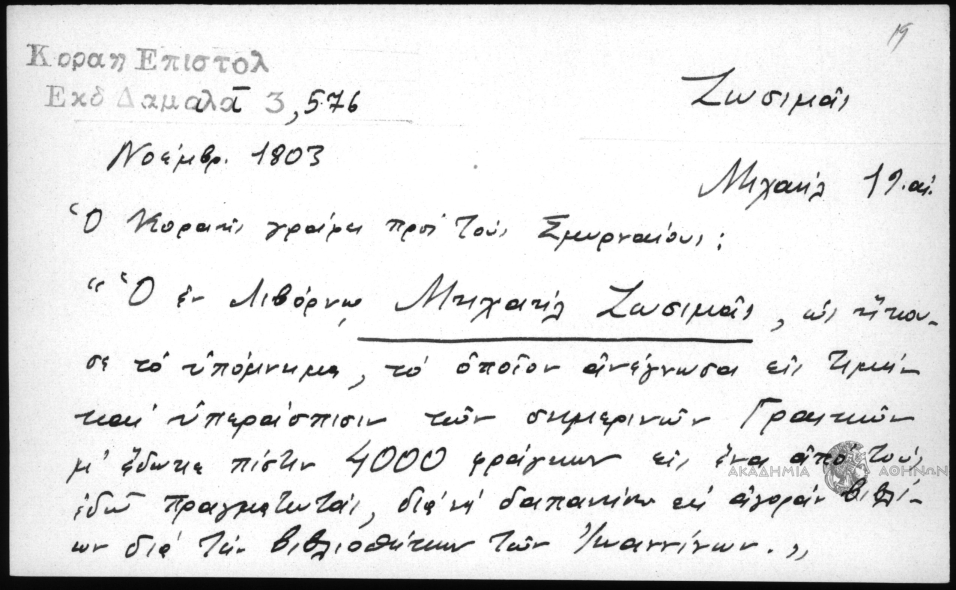 19
Κοραη Επιστολ
Εκδ Δαμαλᾶ 3, 576
Ζωσιμᾶς
Νοέμβρ. 1803
Μιχαὴλ 19. αἰ.
Ὁ Κοραῆς γράφει πρὸς τοὺς Σμυρναίους:
"Ὁ ἐν Λιβόρνῳ Μιχαὴλ Ζωσιμᾶς, ὡς ἤκου-
σε τὸ ὑπόμνημα, τὸ ὁποῖον ἀνέγνωσα εἰς τιμὴν
καὶ ὑπεράσπισιν τῶν σημερινῶν Γραικῶν
μ' ἔδωκε πίστιν 4000 φράγκων εἰς ἕνα ἀπὸ τοὺς
ἐδῶ πραγματευτάς, διὰ νὰ δαπανήσω εἰς ἀγορὰν βιβλί-
ων διὰ τὴν βιβλιοθήκην τῶν Ἰωαννίνων.»
ΑΚΑΔΗΜΙΑ ΑΘΗΝΩΝ